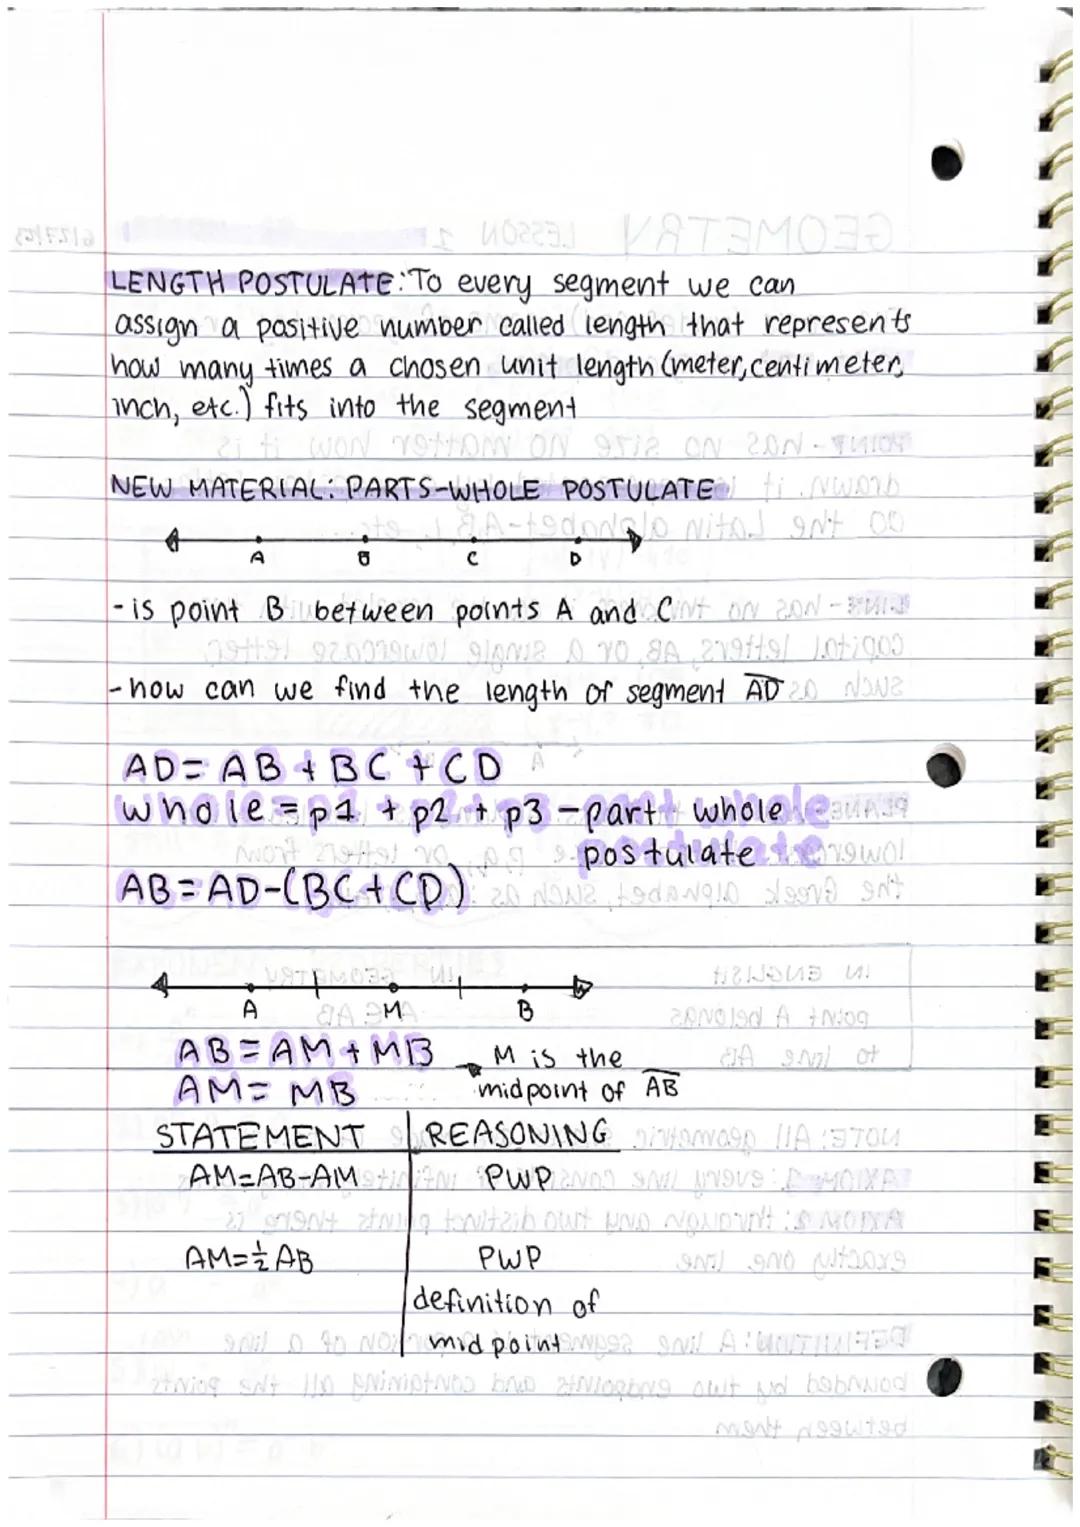 LENGTH POSTULATE: To every segment we can
assign a positive number called length that represents
how many times a chosen unit length (meter, centimeter,
inch, etc.) fits into the segment
NEW MATERIAL: PARTS-WHOLE POSTULATE
A B C D
- is point B between points A and C
- how can we find the length of segment AD
AD = AB + BC + CD
whole = p1 + p2 + p3 - part whole
postulate
AB = AD-(BC + CD)
A M B
AB = AM + MB
M is the
AM = MB
midpoint of AB
STATEMENT REASONING
AM=AB-AM PWP
AM=½AB PWP
definition of
midpoint